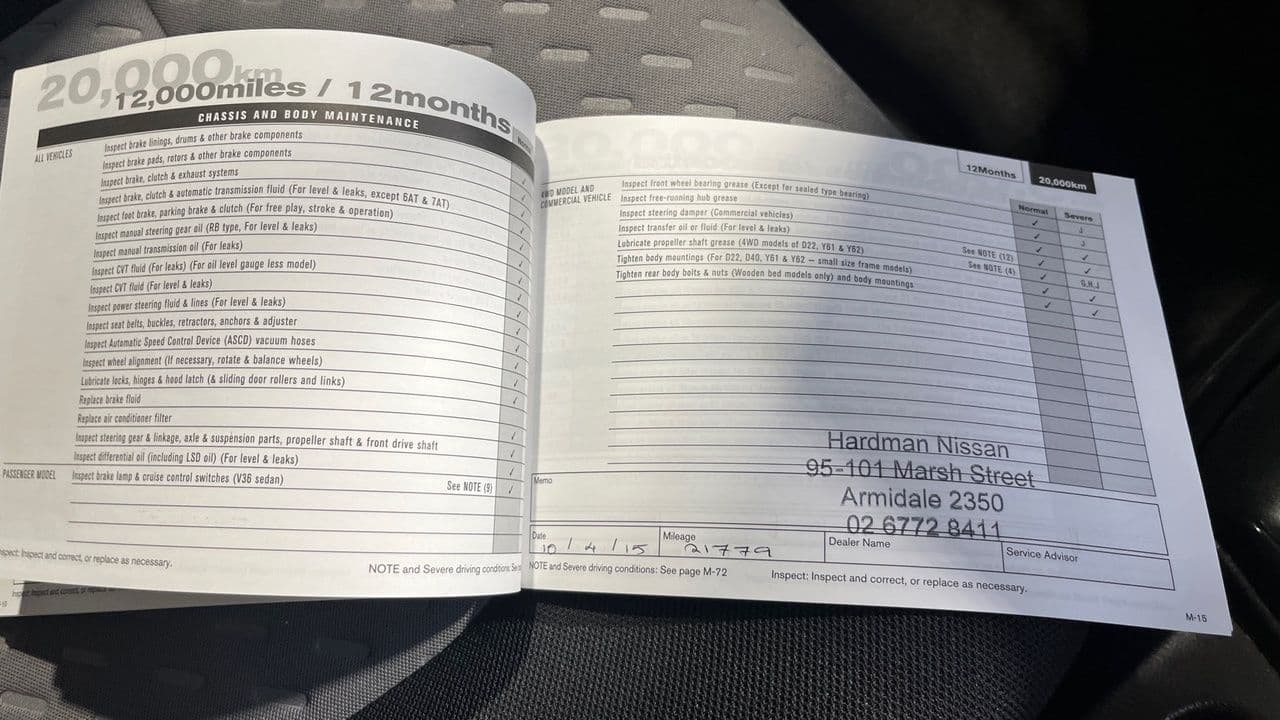 20,000km
12,000miles / 12months
CHASSIS AND BODY MAINTENANCE
ALL VEHICLES
Inspect brake linings, drums & other brake components
Inspect brake pads, rotors & other brake components
Inspect brake, clutch & exhaust systems
Inspect brake, clutch & automatic transmission fluid (For level & leaks, except 6AT & 7AT)
Inspect foot brake, parking brake & clutch (For free play, stroke & operation)
Inspect manual steering gear oil (RB type, For level & leaks)
Inspect manual transmission oil (For leaks)
Inspect CVT fluid (For leaks) (For oil level gauge less model)
Inspect CVT fluid (For level & leaks)
Inspect power steering fluid & lines (For level & leaks)
Inspect seat belts, buckles, retractors, anchors & adjuster
Inspect Automatic Speed Control Device (ASCD) vacuum hoses
Inspect wheel alignment (If necessary, rotate & balance wheels)
Lubricate locks, hinges & hood latch (& sliding door rollers and links)
Replace brake fluid
Replace air conditioner filter
Inspect steering gear & linkage, axle & suspension parts, propeller shaft & front drive shaft
Inspect differential oil (including LSD oil) (For level & leaks)
PASSENGER MODEL Inspect brake lamp & cruise control switches (V36 sedan) See NOTE (9) ✓
Inspect: Inspect and correct, or replace as necessary.
NOTE and Severe driving conditions: See
12Months 20,000km
Normal Severe
4WD MODEL AND
COMMERCIAL VEHICLE
Inspect front wheel bearing grease (Except for sealed type bearing) ✓ J
Inspect free-running hub grease ✓ J
Inspect steering damper (Commercial vehicles) ✓ ✓
Inspect transfer oil or fluid (For level & leaks) See NOTE (12) ✓ ✓
Lubricate propeller shaft grease (4WD models of D22, Y61 & Y62) See NOTE (4) ✓ G,H,J
Tighten body mountings (For D22, D40, Y61 & Y62 – small size frame models) ✓ ✓
Tighten rear body bolts & nuts (Wooden bed models only) and body mountings ✓ ✓
Hardman Nissan
95-101 Marsh Street
Armidale 2350
02 6772 8411
Memo
Date 10/4/15
Mileage 21779
Dealer Name
Service Advisor
NOTE and Severe driving conditions: See page M-72
Inspect: Inspect and correct, or replace as necessary.
M-15